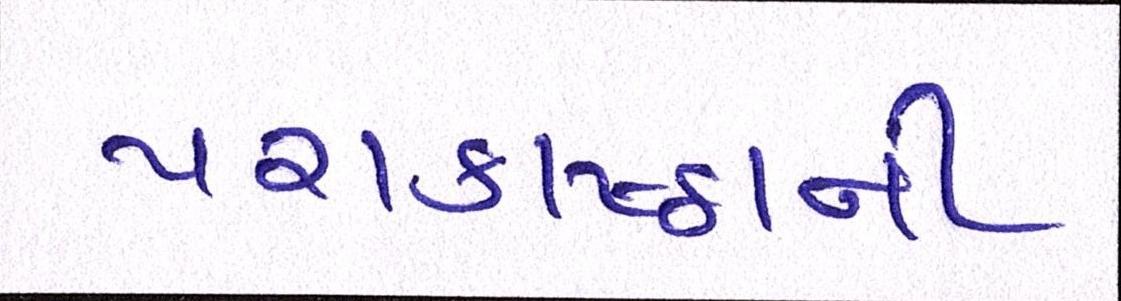 પરાકાષ્ઠાની